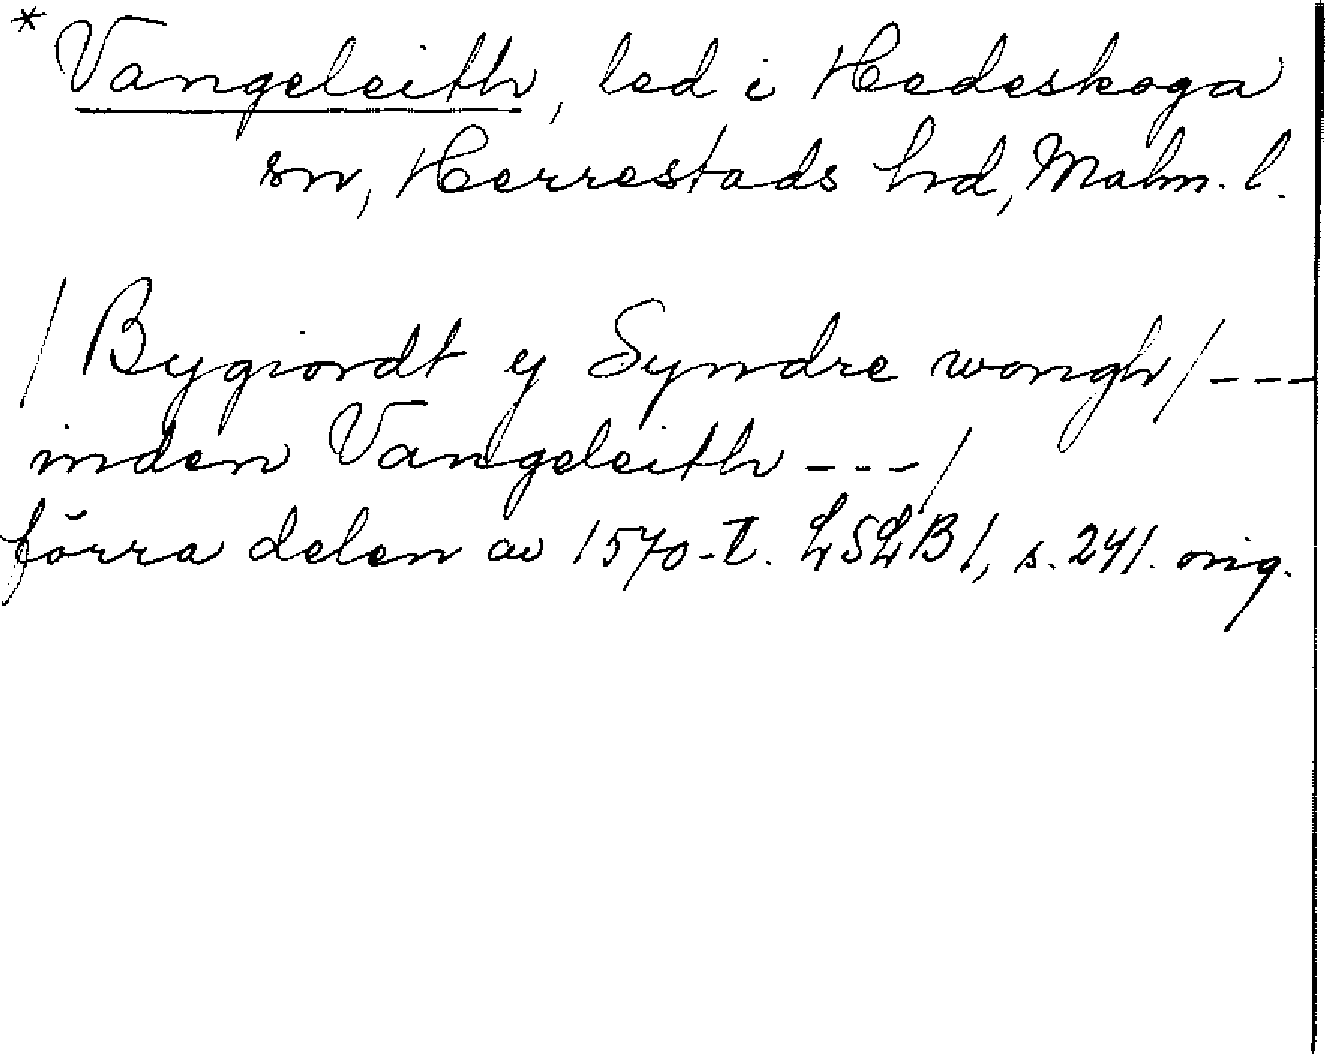 *Vangeleith, led i Hedeskoga
sn, Herrestads hd, Malm. l.
/Bygiordt y Syndre wongh/ ---
inden Vangeleith ---/
förra delen av 1570-t. LSLB 1, s. 241. orig.